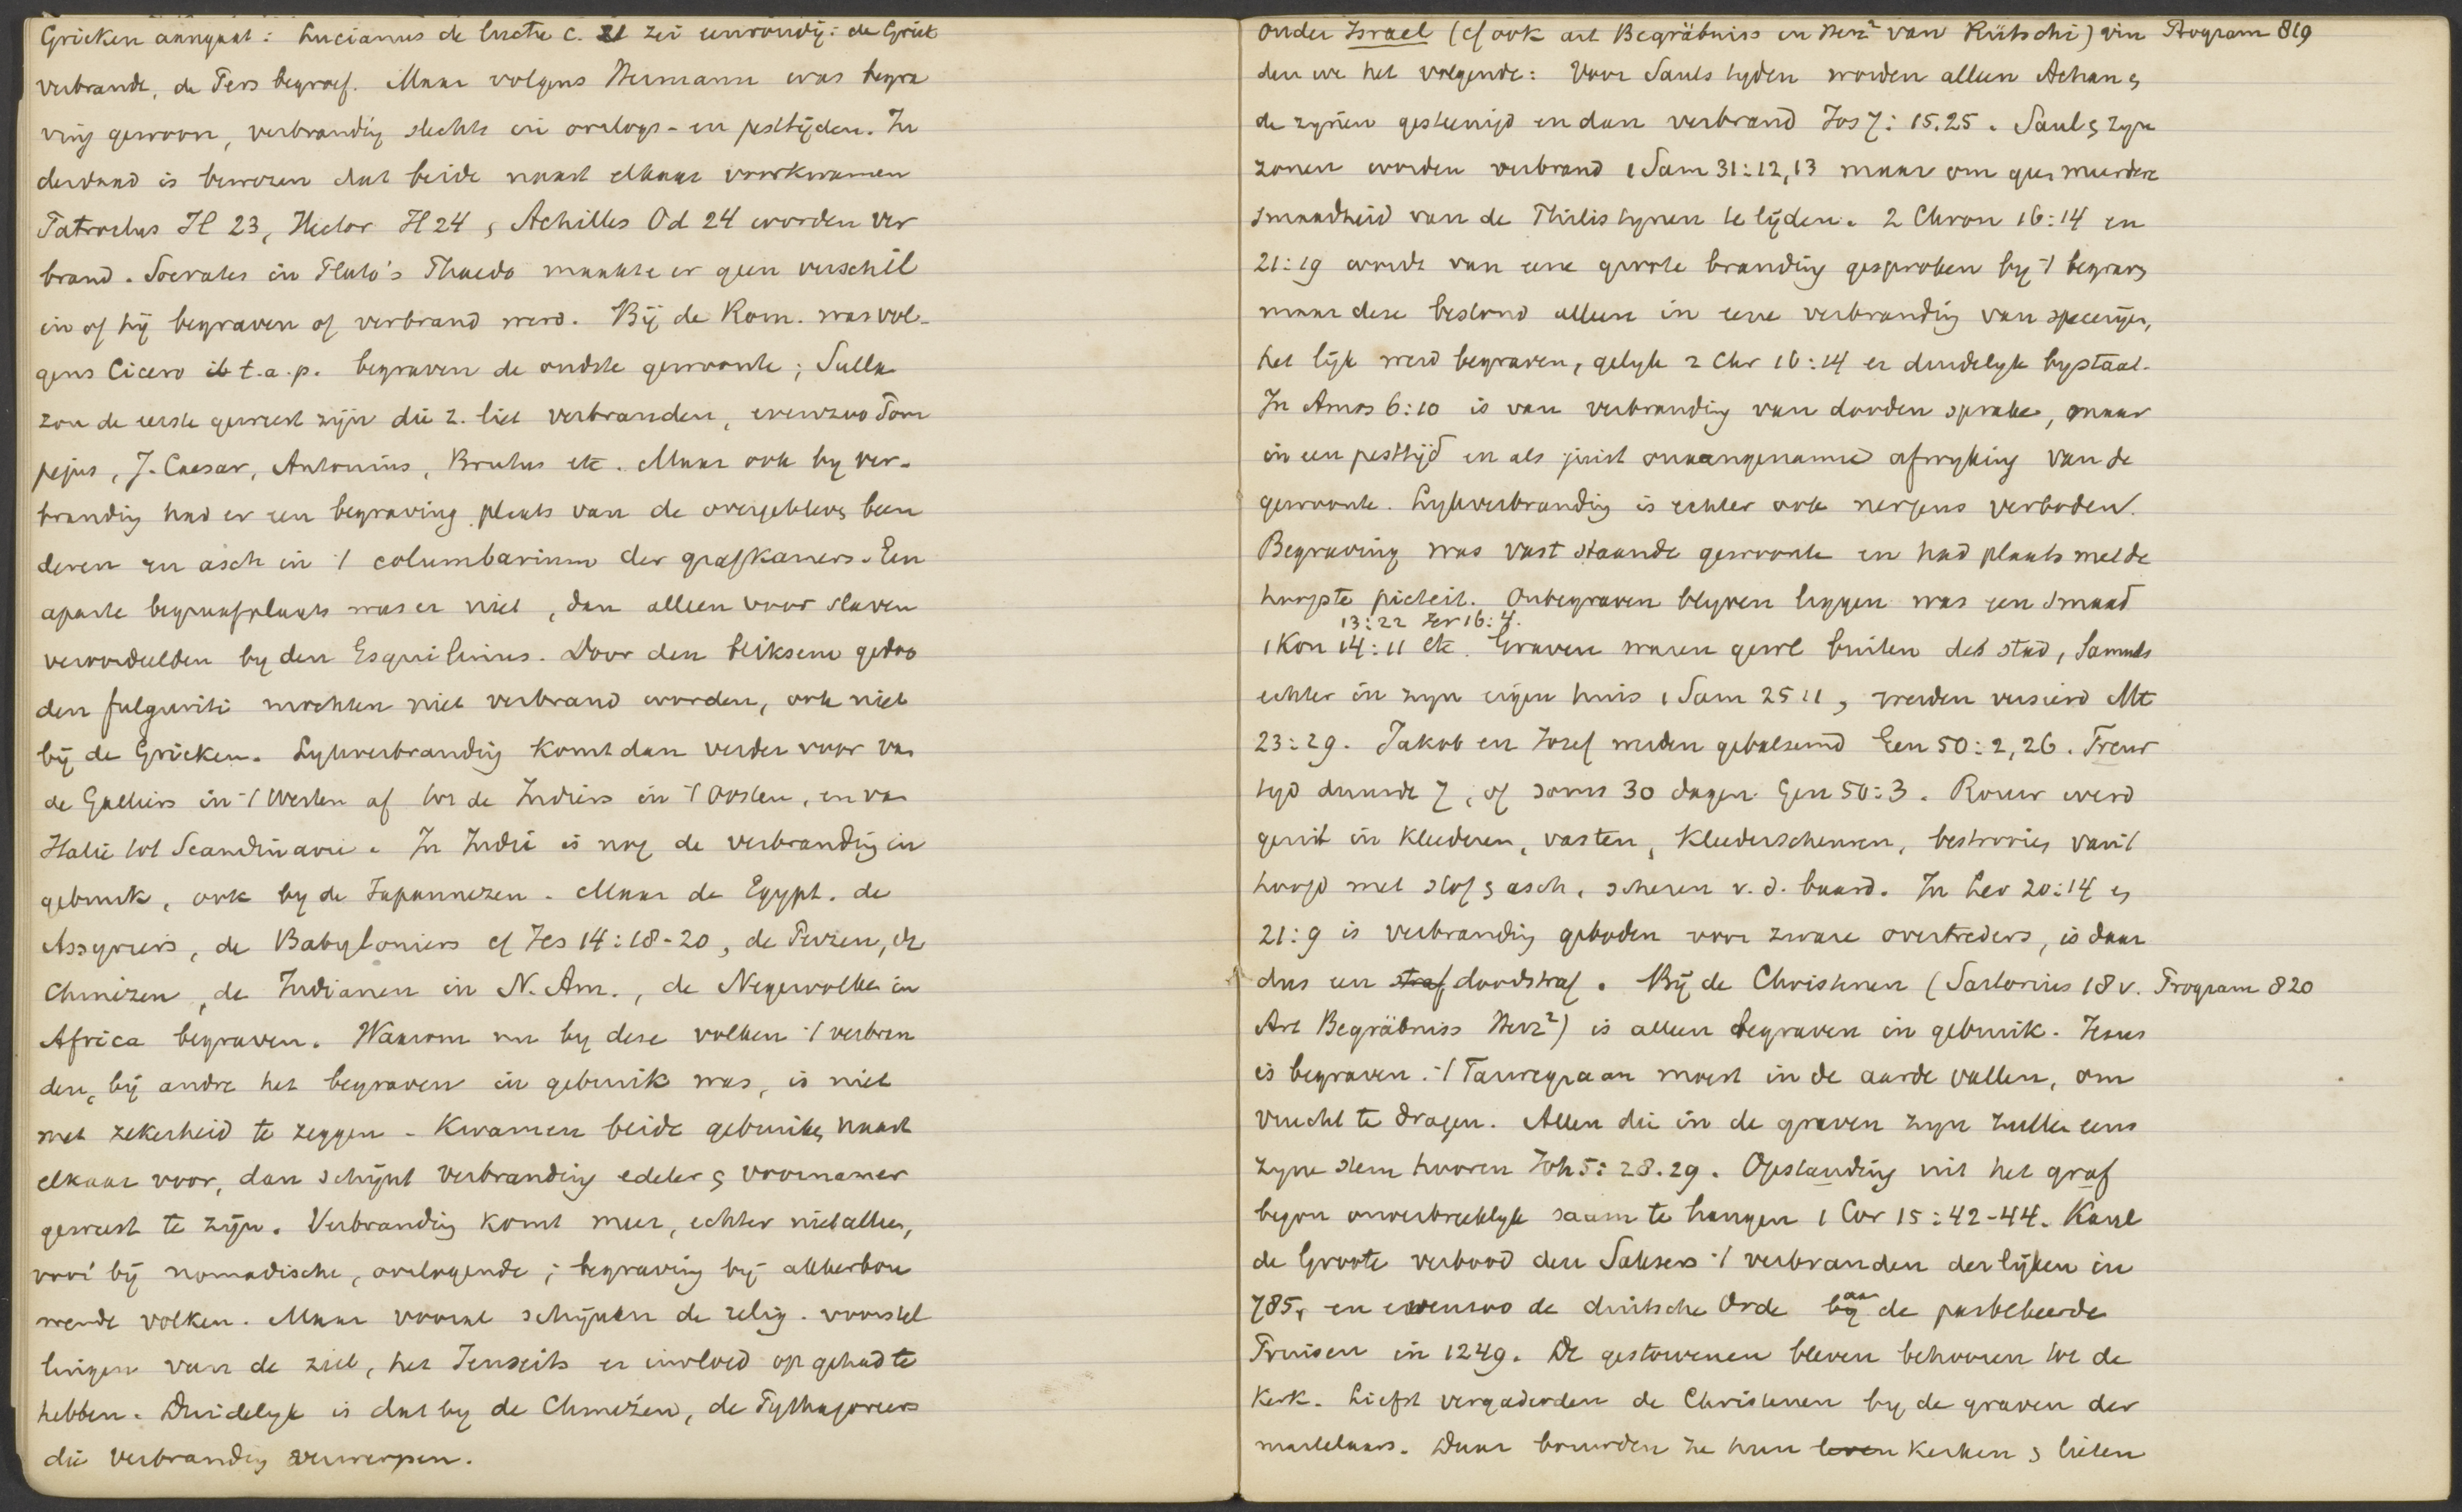 Grieken aangaat: Lucianus de luctu c. 21 zei eenvoudig: de Griek
verbrandt, de Pers begroef. Maar volgens Hermann was begra
ving gewoon, verbranding slechts in oorlogs- en pesttijden. In
derdaad is bewezen dat beide naast elkaar voorkwamen
Patroclus Il 23, Hector Il 24, Achilles Od 24 worden ver
brand. Socrates in Plato's Phaedo maakte er geen verschil
in of hij begraven of verbrand werd. Bij de Rom. was vol-
gens Cicero t.a.p. begraven de oudste gewoonte; Sulla
zou de eerste geweest zijn die z. liet verbranden, evenzoo Pom
pejus, J. Caesar, Antonius, Brutus etc. Maar ook by ver-
branding had er een begraving plaats van de overgebleven been
deren en asch in 't columbarium der grafkamers. Een
aparte begraafplaats was er niet, dan alleen voor slaven
veroordeelden by den Esquilinus. Door den bliksem gedoo
den fulguriti mochten niet verbrand worden, ook niet
bij de Grieken. Lykverbranding komt dan verder voor van
de Galliers in 't Westen af tot de Indiers in 't Oosten, en van
Italie tot Scandinavie. In Indie is nog de verbranding in
gebruik, ook by de Japannezen. Maar de Egypt. de
Assyriers, de Babyloniers cf Jes 14:18-20, de Perzen, de
Chinezen, de Indianen in N. Am., de Negervolken in
Africa begraven. Waarom nu by deze volken 't verbran
den, bij andre het begraven in gebruik was, is niet
met zekerheid te zeggen. Kwamen beide gebruiken naast
elkaar voor, dan schijnt verbranding edeler & voornamer
geweest te zijn. Verbranding komt meer, echter niet alleen,
voor bij nomadische, oorlogende; begraving bij akkerbou
wende volken. Maar vooral schijnen de relig. voorstel
lingen van de ziel, het Jenseits er invloed op gehad te
hebben. Duidelyk is dat by de Chinezen, de Pythagoreers
die verbranding verwerpen.
onder Israel (cf ook art Begräbniss in Herz² van Rütschi) vin Program 819
den we het volgende: Voor Sauls tyden worden alleen Achan &
de zynen gesteenigd en dan verbrand Jos 7: 15.25. Saul & zyn
zonen worden verbrand 1 Sam 31:12,13 maar om geen meerdere
smaadheid van de Philistynen te lijden. 2 Chron 16:14 en
21:19 wordt van eene groote branding gesproken by 't begraven
maar deze bestond alleen in eene verbranding van specerijen,
het lijk werd begraven, gelyk 2 Chr 16:14 er duidelyk bystaat.
In Amos 6:10 is van verbranding van dooden sprake, maar
in een pesttijd en als juist onaangename afwyking van de
gewoonte. Lykverbranding is echter ook nergens verboden.
Begraving was vaststaande gewoonte en had plaats met de
hoogste pieteit. Onbegraven blyven liggen was een smaad
13:22 Jer 16:4.
1 Kon 14:11 etc. Graven waren gewl buiten de stad, Samuels
echter in zyn eigen huis 1 Sam 25 11, werden versierd Mt
23:29. Jakob en Jozef werden gebalsemd Gen 50:2,26. Treur
tyd duurde 7, of soms 30 dagen Gen 50:3. Rouw werd
geuit in kleederen, vasten, kleederscheuren, bestrooien van 't
hoofd met stof & asch, scheren v. d. baard. In Lev 20:14 en
21:9 is verbranding geboden voor zware overtreders, is daar
dus een straf doodstraf. Bij de Christenen (Sartorius 18 v. Program 820
Art Begräbniss Herz²) is alleen begraven in gebruik. Jezus
is begraven. 't Tarwegraan moest in de aarde vallen, om
vrucht te dragen. Allen die in de graven zyn zullen eens
zyne stem hooren Joh 5: 28.29. Opstanding uit het graf
begon onverbreeklyk saam te hangen 1 Cor 15:42-44. Karel
de Groote verbood den Saksers 't verbranden der lijken in
785, en evenzoo de duitsche Orde by aan de pasbekeerde
Pruisen in 1249. De gestorvenen bleven behooren tot de
Kerk. Liefst vergaderden de Christenen by de graven der
martelaars. Daar bouwden ze hun leven kerken & lieten